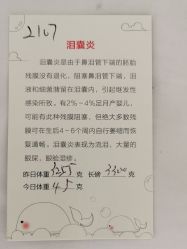 2107
泪囊炎
泪囊炎是由于鼻泪管下端的胚胎
残膜没有退化，阻塞鼻泪管下端，泪
液和细菌潴留在泪囊内，引起继发性
感染所致，有2%～4%足月产婴儿，
可能有此种残膜阻塞，但绝大多数残
膜可在生后4～6个周内自行萎缩而恢
复通畅，泪囊炎表现为流泪、大量的
眼屎、眼脸湿疹。
昨日体重3255克 长磅3300克
今日体重45克